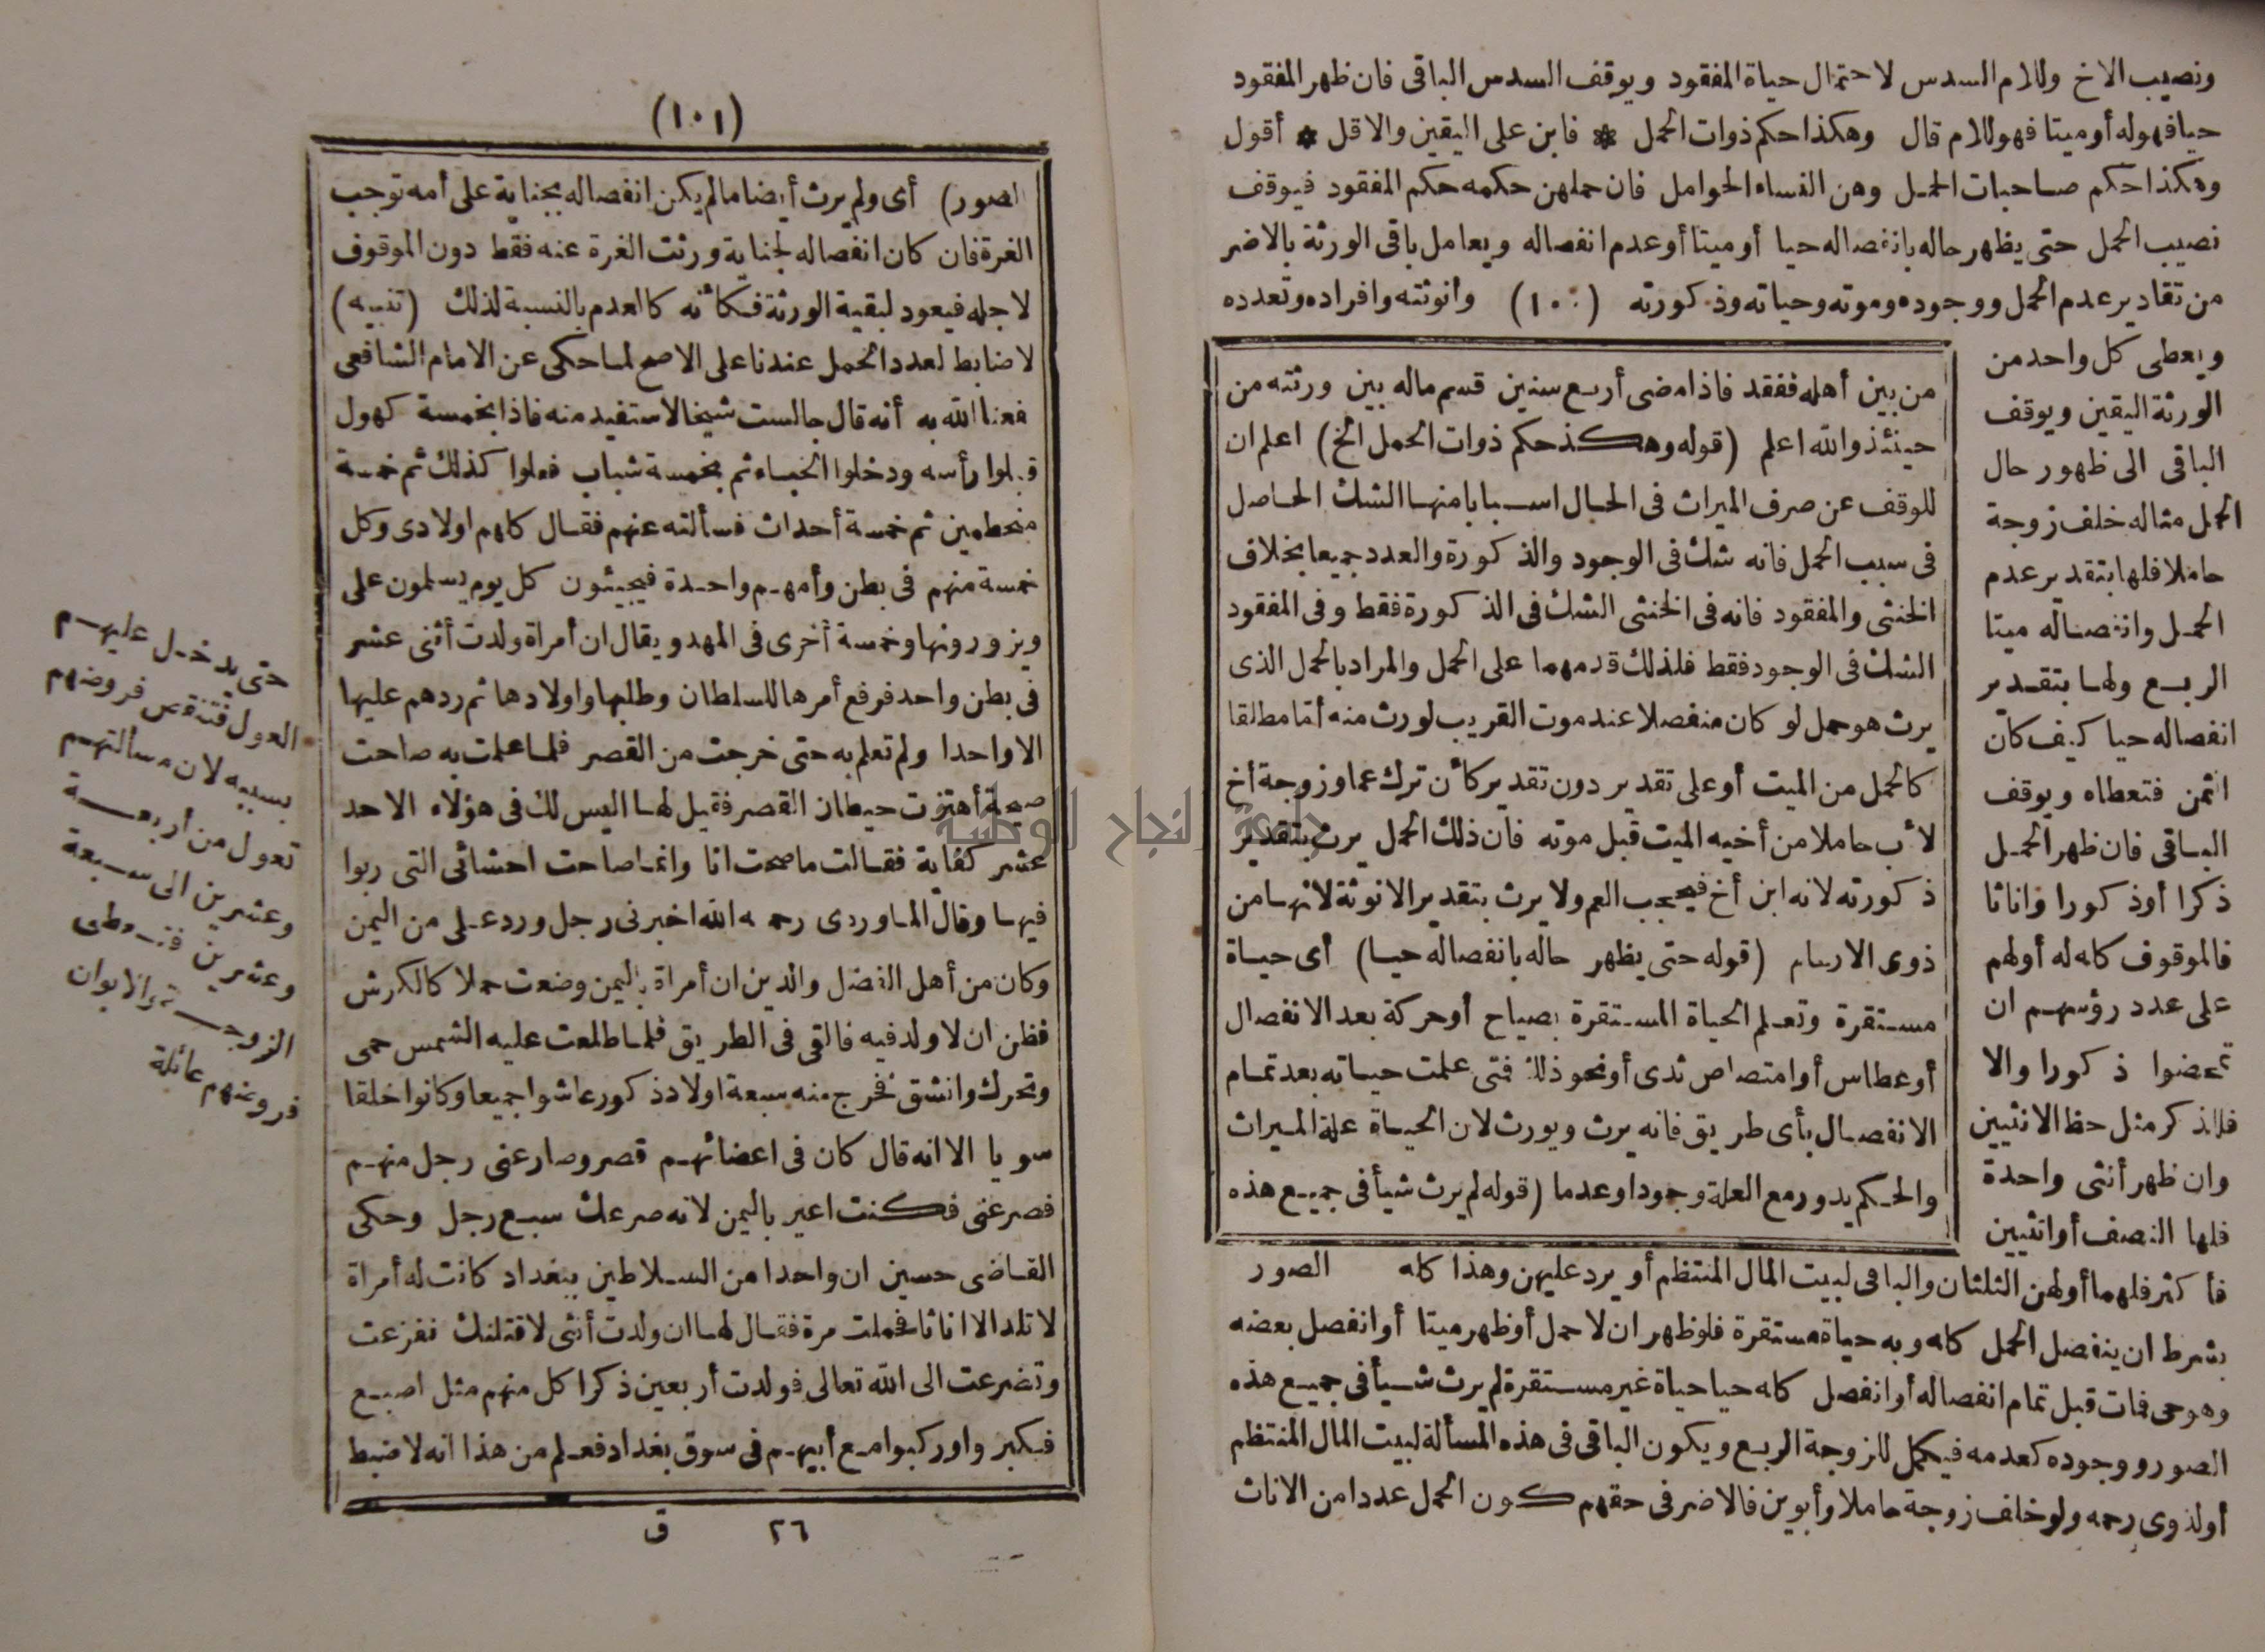 ونصيب الاخ وللام السدس لاحتمال حياة المفقود ويوقف السدس الباقى فان ظهر المفقود
حيا فهو له أو ميتا فهو للام قال وهكذا حكم ذوات الحمل * فابن على اليقين والاقل * أقول
وهكذا حكم صاحبات الحمل وهن النساء الحوامل فان حملهن حكمه حكم المفقود فيوقف
نصيب الحمل حتى يظهر حاله بانفصاله حيا أو ميتا أو عدم انفصاله ويعامل باقى الورثة بالاضر
من تقادير عدم الحمل ووجوده وموته وحياته وذكورته (١٠٠) وأنوثته وافراده وتعدده
ويعطى كل واحد من
الورثة اليقين ويوقف
الباقى الى ظهور حال
الحمل مثاله خلف زوجة
حاملا فلها بتقدير عدم
الحمل وانفصاله ميتا
الربع ولها بتقدير
انفصاله حيا كيف كان
الثمن فتعطاه ويوقف
الباقى فان ظهر الحمل
ذكرا أوذكورا واناثا
فالموقوف كله له أولهم
على عدد رؤسهم ان
تمحضوا ذكورا والا
فللذكر مثل حظ الانثيين
وان ظهر أنثى واحدة
فلها النصف أوانثيين
فأكثر فلهما أولهن الثلثان والباقى لبيت المال المنتظم أو يرد عليهن وهذا كله الصور
بشرط ان ينفصل الحمل كله وبه حياة مستقرة فلو ظهر ان لا حمل أو ظهر ميتا أو انفصل بعضه
وهو حى فمات قبل تمام انفصاله أو انفصل كله حيا حياة غير مستقرة لم يرث شيأ فى جميع هذه
الصور ووجوده كعدمه فيكمل للزوجة الربع ويكون الباقى فى هذه المسألة لبيت المال المنتظم
أولذوى رحمه ولو خلف زوجة حاملا وأبوين فالاضر فى حقهم كون الحمل عددا من الاناث
من بين أهله ففقد فاذا مضى أربع سنين قسم ماله بين ورثته من
حينئذ والله اعلم (قوله وهكذ حكم ذوات الحمل الخ) اعلم ان
للوقف عن صرف الميراث فى الحال اسبابا منها الشك الحاصل
فى سبب الحمل فانه شك فى الوجود والذكورة والعدد جميعا بخلاف
الخنثى والمفقود فانه فى الخنثى الشك فى الذكورة فقط وفى المفقود
الشك فى الوجود فقط فلذلك قدمهما على الحمل والمراد بالحمل الذى
يرث هو حمل لو كان منفصلا عند موت القريب لورث منه أما مطلقا
كالحمل من الميت أو على تقدير دون تقدير كأن ترك عما وزوجة أخ
لأب حاملا من أخيه الميت قبل موته فان ذلك الحمل يرث بتقدير
ذكورته لانه ابن أخ فيحجب العم ولا يرث بتقدير الانوثة لانها من
ذوى الارحام (قوله حتى يظهر حاله بانفصاله حيا) أى حياة
مستقرة وتعلم الحياة المستقرة بصياح أو حركة بعد الانفصال
أو عطاس أو امتصاص ثدى أو نحو ذلك فمتى علمت حياته بعد تمام
الانفصال بأى طريق فانه يرث ويورث لان الحياة علة الميراث
والحكم يدور مع العلة وجودا وعدما (قوله لم يرث شيأ فى جميع هذه
(١٠١)
الصور) أى ولم يرث أيضا مالم يكن انفصاله بجناية على أمه توجب
الغرة فان كان انفصاله لجناية ورثت الغرة عنه فقط دون الموقوف
لاجله فيعود لبقية الورثة فكأنه كالعدم بالنسبة لذلك (تنبيه)
لا ضابط لعدد الحمل عندنا على الاصح لما حكى عن الامام الشافعى
نفعنا الله به أنه قال جالست شيخا لاستفيد منه فاذا بخمسة كهول
قبلوا رأسه ودخلوا الخباء ثم بخمسة شباب فعلوا كذلك ثم خمسة
منحطمين ثم خمسة أحداث فسألته عنهم فقال كلهم اولادى وكل
خمسة منهم فى بطن وأمهم واحدة فيجيئون كل يوم يسلمون على
ويزورونها وخمسة أخرى فى المهد ويقال ان أمراة ولدت أثنى عشر
فى بطن واحد فرفع أمرها للسلطان وطلبها واولادها ثم ردهم عليها
الا واحدا ولم تعلم به حتى خرجت من القصر فلما علمت به صاحت
صيحة أهتزت حيطان القصر فقيل لها اليس لك فى هؤلاء الاحد
عشر كفاية فقالت ما صحت انا وانما صاحت احشائى التى ربوا
فيها وقال الماوردى رحمه الله اخبرنى رجل ورد على من اليمن
وكان من أهل الفضل والدين ان أمراة باليمن وضعت حملا كالكرش
فظن ان لا ولد فيه فالقى فى الطريق فلما طلعت عليه الشمس حمى
وتحرك وانشق فخرج منه سبعة اولاد ذكور عاشوا جميعا وكانوا خلقا
سويا الا انه قال كان فى اعضائهم قصر وصارعنى رجل منهم
فصرعنى فكنت اعير باليمن لانه صرعك سبع رجل وحكى
القاضى حسين ان واحدا من السلاطين ببغداد كانت له أمراة
لا تلد الا اناثا فحملت مرة فقال لها ان ولدت أنثى لاقتلنك ففزعت
وتضرعت الى الله تعالى فولدت أربعين ذكرا كل منهم مثل اصبع
فكبروا وركبوا مع أبيهم فى سوق بغداد فعلم من هذا انه لا ضبط
حتى يدخل عليهم
العول فتنقص فروضهم
بسببه لان مسألتهم
تعول من أربعة
وعشرين الى سبعة
وعشرين فتعطى
الزوجة والابوان
فروضهم عائلة
٢٦ ق
جامعة النجاح الوطنية